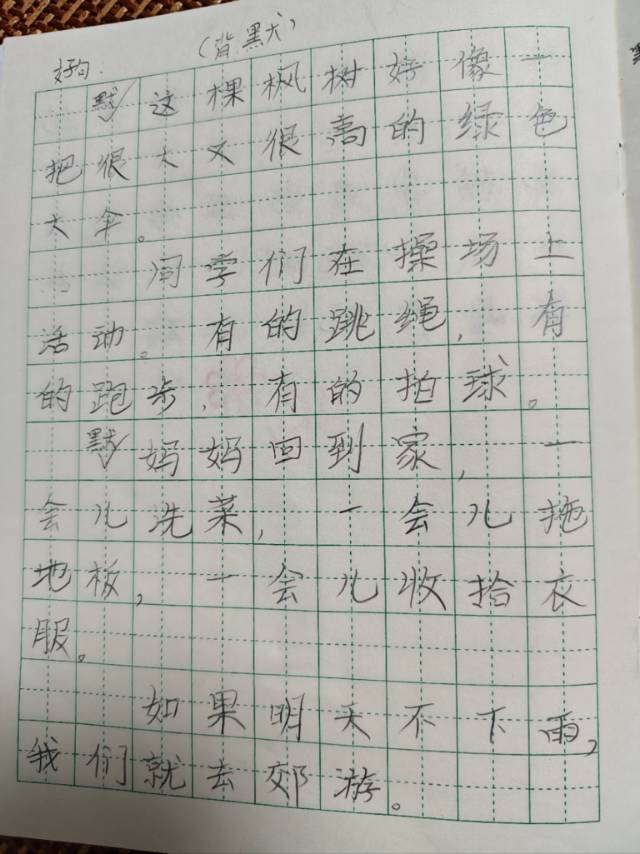 好句. (背默)
默√这棵枫树好像一
把很大又很高的绿色
大伞。
同学们在操场上
活动。有的跳绳,有
的跑步,有的拍球。
默√妈妈回到家,一
会儿洗菜,一会儿拖
地板,一会儿收拾衣
服。
如果明天不下雨,
我们就去郊游。